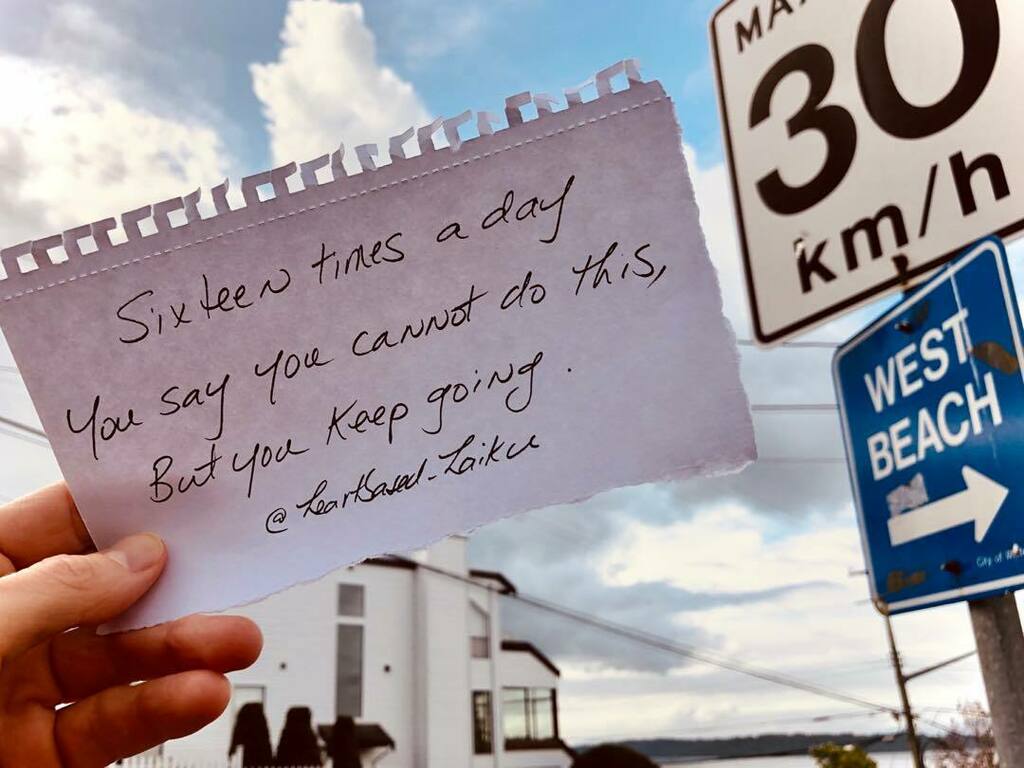 Sixteen times a day
You say you cannot do this,
But you keep going.
@heartbased_haiku
30
km/h
WEST
BEACH
City of